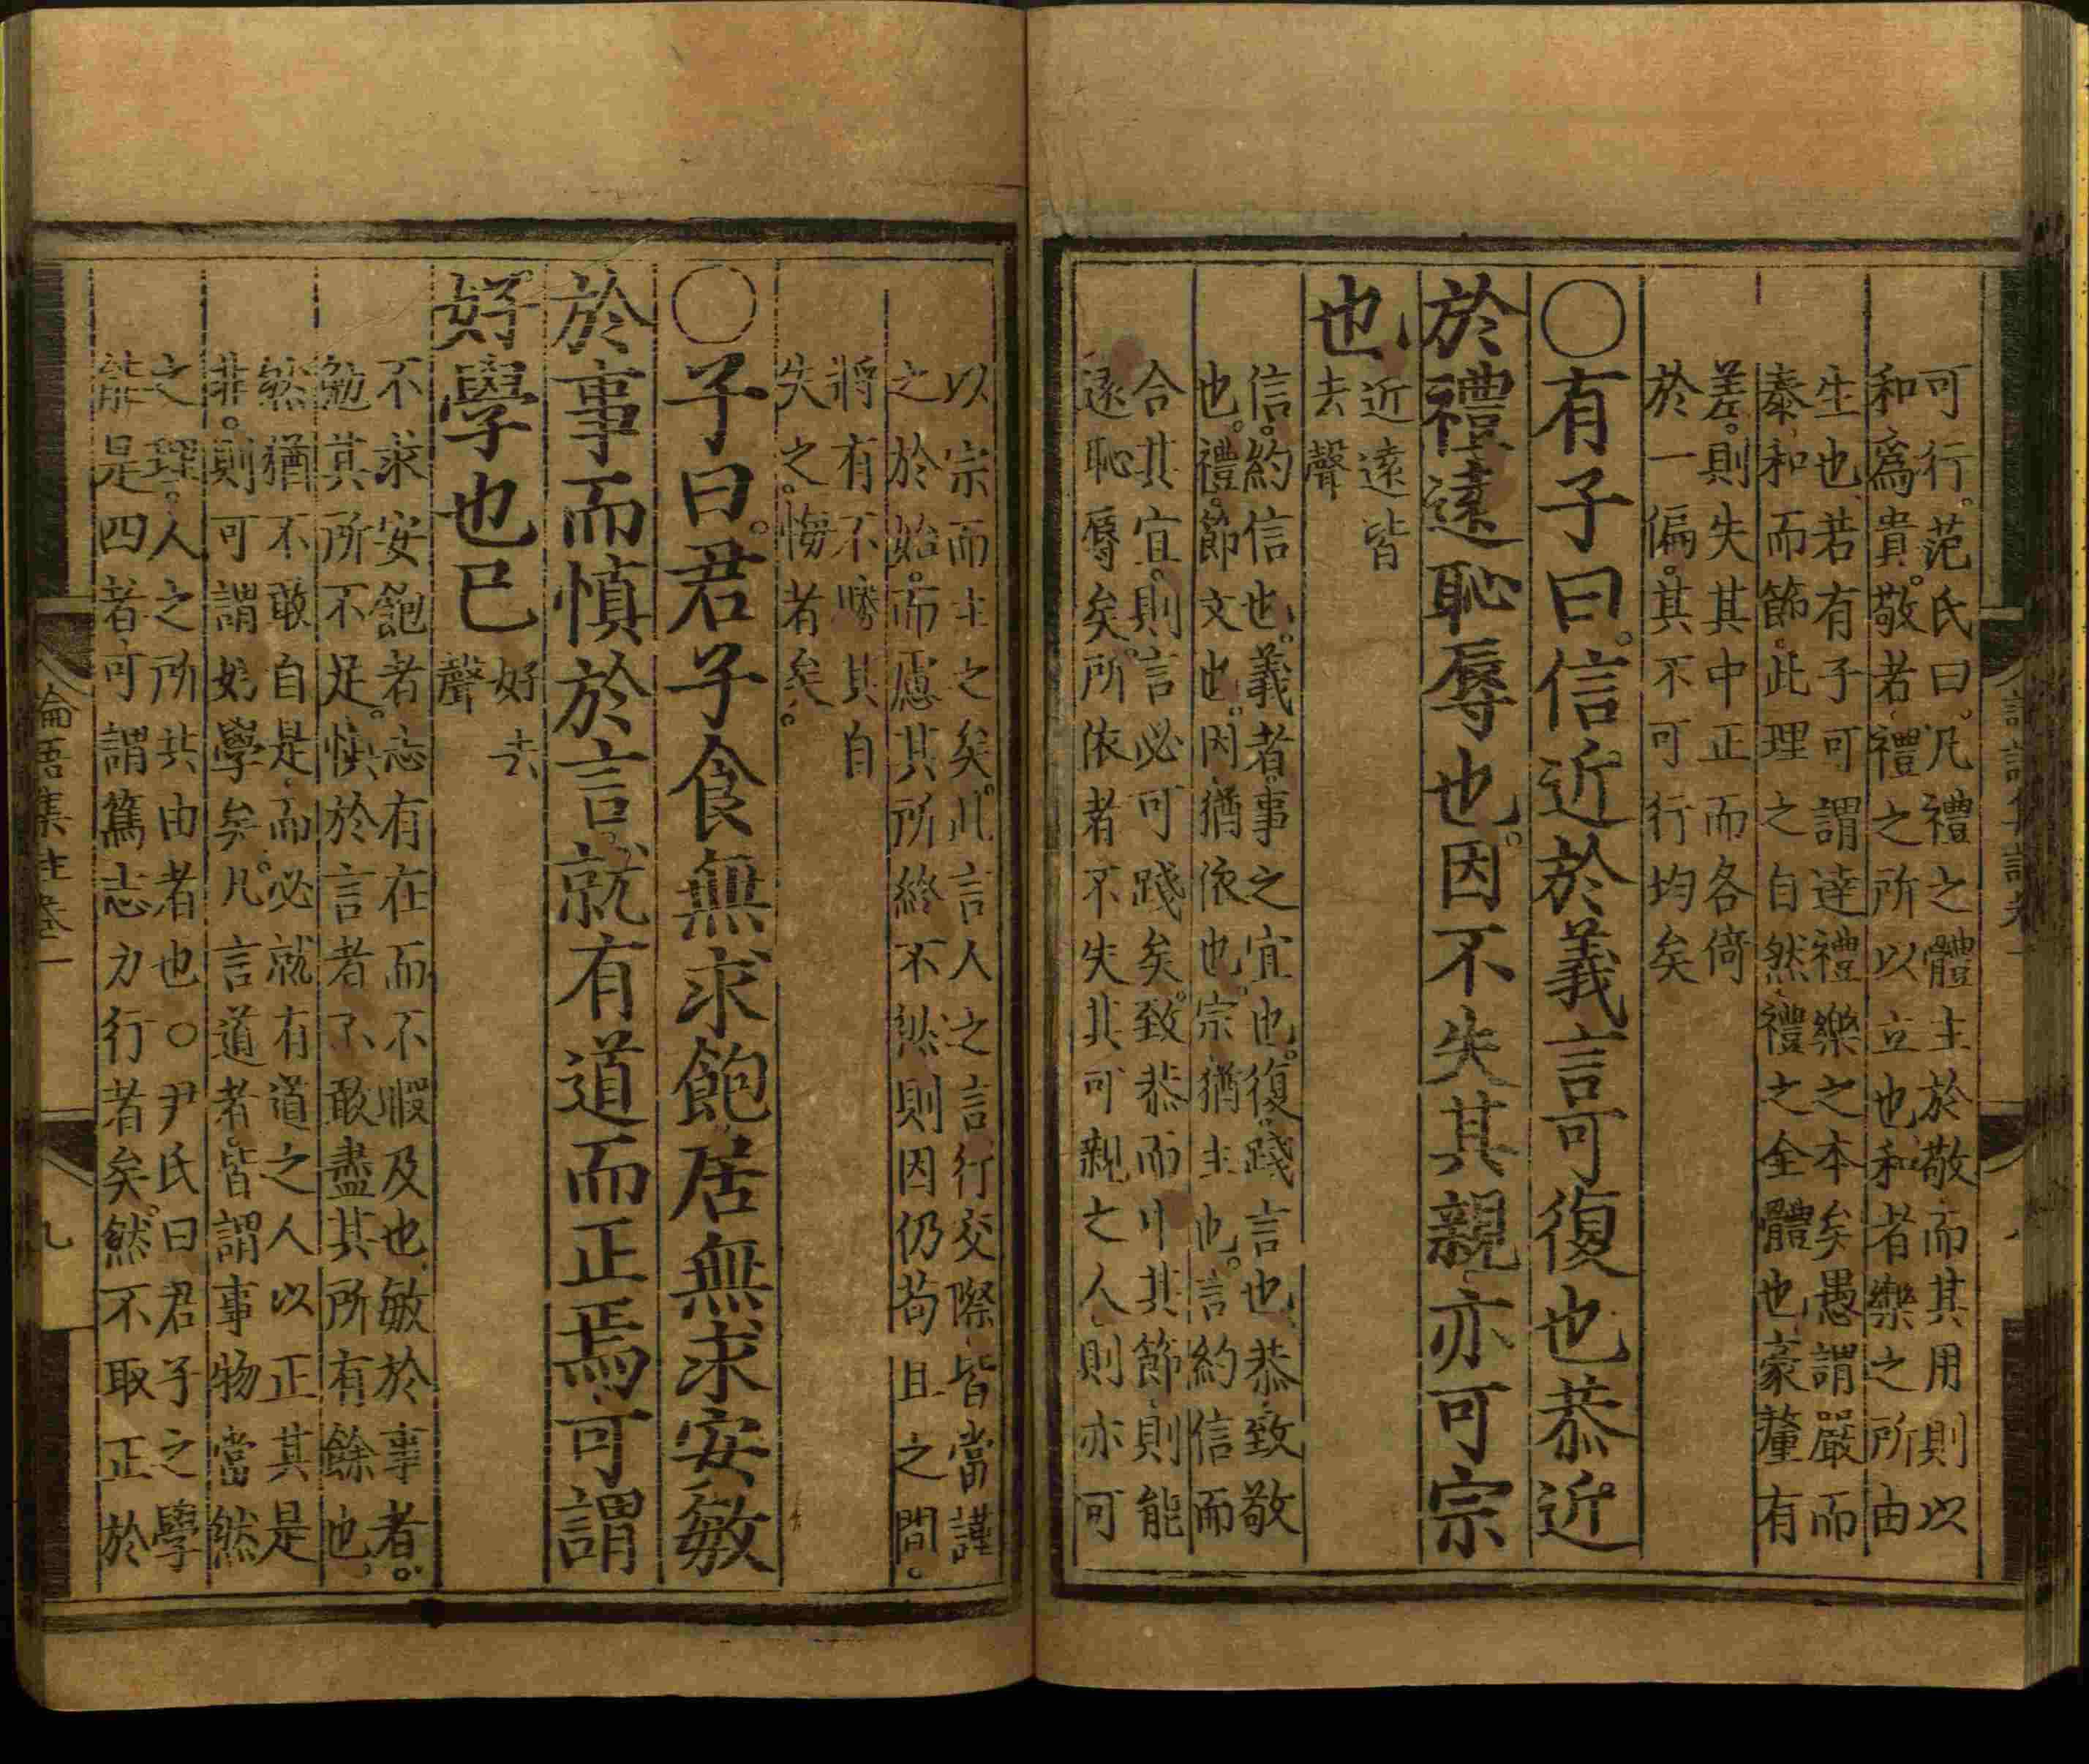 可行。范氏曰。凡禮之體主於敬而其用則以
和爲貴。敬者禮之所以立也和者樂之所由
生也若有子可謂達禮樂之本矣愚謂嚴而
泰和而節。此理之自然禮之全體也豪釐有
差。則失其中正而各倚
於一偏。其不可行均矣
○有子曰。信近於義言可復也恭近
於禮遠恥辱也。因不失其親亦可宗
也
近遠皆
去聲
信。約信也。義者事之宜也。復踐言也恭致敬
也。禮。節文也。因猶依也。宗猶主也。言約信而
合其宜。則言必可踐矣。致恭而中其節則能
遠恥辱矣。所依者不失其可親之人則亦可
以宗而主之矣。此言人之言行交際皆當謹
之於始。而慮其所終不然則因仍苟且之間。
將有不勝其自
失之。悔者矣。
○子曰。君子食無求飽居無求安敏
於事而慎於言就有道而正焉可謂
好學也已
好去
聲
不求安飽者志有在而不暇及也敏於事者。
勉其所不足。慎於言者不敢盡其所有餘也
然猶不敢自是而必就有道之人以正其是
非。則可謂好學矣。凡言道者。皆謂事物當然
之理。人之所共由者也○尹氏曰君子之學
能是四者可謂篤志力行者矣。然不取正於
論語集註卷一
九